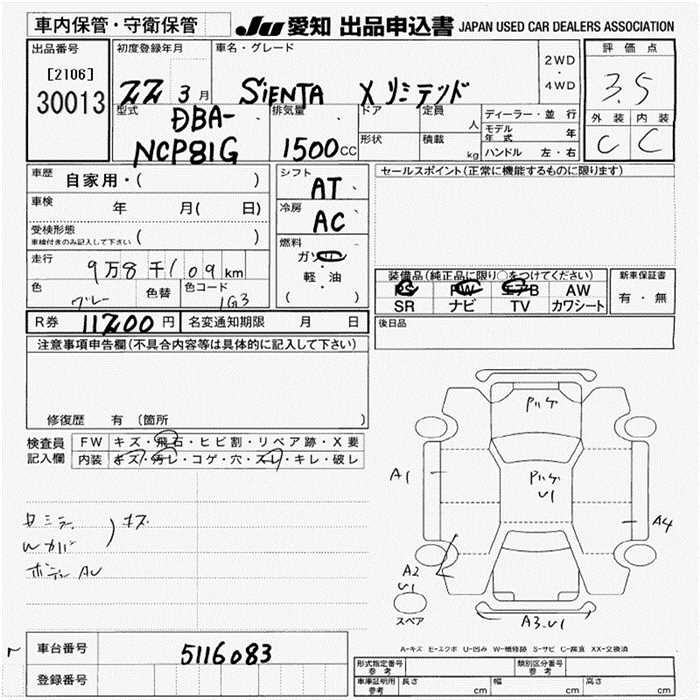 車内保管・守衛保管 JU 愛知 出品申込書 JAPAN USED CAR DEALERS ASSOCIATION
出品番号 初度登録年月 車名・グレード 2WD ・ 4WD 評価点
[2106]
30013 22 3月 SiENTA Xリミテッド 3.5
型式 排気量 ドア 定員 人 ディーラー・並行 外装 内装
DBA- モデル年式 年
NCP81G 1500cc 形状 積載 kg ハンドル 左・右 C C
車歴 自家用・( ) シフト AT セールスポイント(正常に機能するものに限ります)
車検 年 月( 日) 冷房 AC
受検形態
車検付きのみ記入して下さい ( )
燃料
ガソリン
軽・油
( )
走行 9万8千109km
装備品(純正品に限り○をつけてください) 新車保証書
PS PW エアB AW 有・無
SR ナビ TV カワシート
色 グレー 色替 色コード 1G3
R券 11200円 名変通知期限 月 日 後日品
注意事項申告欄(不具合内容等は具体的に記入して下さい)
修復歴 有 (箇所 )
検査員記入欄 FW キズ・飛石・ヒビ割・リペア跡・X要
内装 キズ・汚レ・コゲ・穴・スレ・キレ・破レ
A1
U1
A4
A2
U1
スペア
A3.U1
キズ
A-キズ E-エクボ U-凹み W-補修跡 S-サビ C-腐食 XX-交換済
車台番号 5116083
登録番号
形式指定番号 参考 類別区分番号 参考
車庫証明用 参考 長さ cm 幅 cm 高さ cm